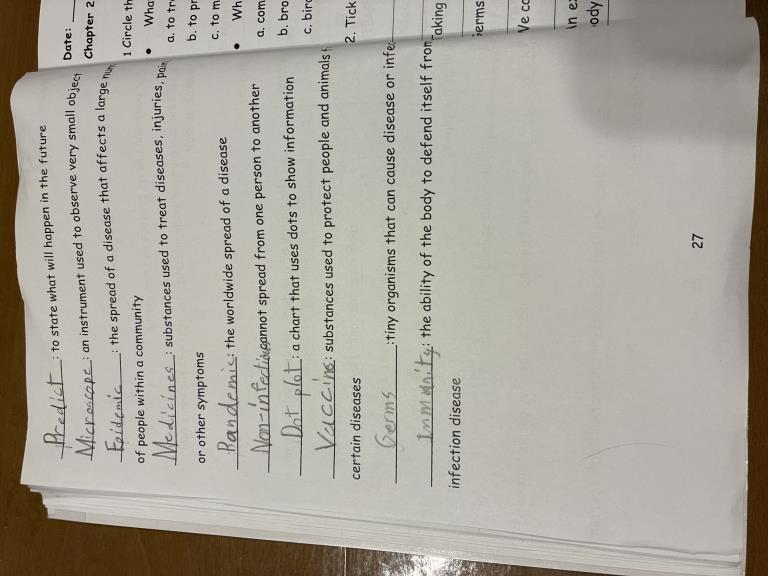 Predict : to state what will happen in the future
Microscope : an instrument used to observe very small object
Epidemic : the spread of a disease that affects a large num
of people within a community
Medicines : substances used to treat diseases, injuries, pain
or other symptoms
Pandemic : the worldwide spread of a disease
Non-infectious cannot spread from one person to another
Dot plot : a chart that uses dots to show information
Vaccine : substances used to protect people and animals f
certain diseases
Germs :tiny organisms that can cause disease or infe
Immunity : the ability of the body to defend itself from
infection disease
27
Date:
Chapter 2
1 Circle th
• Wha
a. to tr
b. to pr
c. to m
• Wh
a. com
b. bro
c. bird
2. Tick
Taking
erms
Ve co
In e
ody